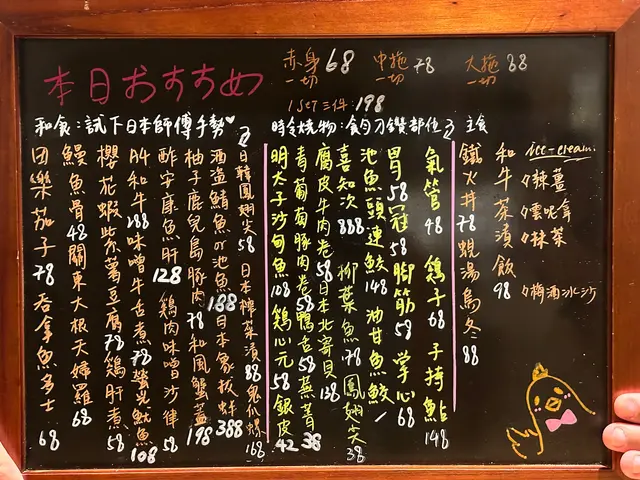 本日おすすめ
赤身一切 68 中拖一切 78 大拖一切 88
1 SET 三件：198
和食：試下日本師傅手勢♥
日韓鳳翅尖 58 日本稗菜漬 88 鬼爪螺 168
酒盗鯖魚or池魚 188 日本象拔蚌 388
柚子鹿兒島豚肉 78 和風蟹蓋 198
酢安康魚肝 128 鶏肉味噌沙律 58
A4和牛 288 味噌牛舌煮 78 螢光魷魚 108
櫻花蝦紫萬豆腐 78 鶏肝煮 58
鰻魚骨 48 關東大根天婦羅 68
団樂茄子 78 吞拿魚多士 68
時令燒物：
氣管 48 鶏子 68 子持鮎 148
胃冠 58 脚筋 58 学心 68
池魚頭連鮫 148 油甘魚鮫
喜知次 888 柳葉魚 78 鳳翅尖 38
腐皮牛肉卷 58 日本北寄貝 138
青葡萄豚肉卷 58 鴨舌 58 蕪菁 38
明太子沙甸魚 108 鶏心元 58 銀皮 42
主食
和牛茶漬飯 98
鐵火丼 78 蜆湯烏冬 88
ice-cream.
辣薑
雲呢拿
抹茶
梅酒冰沙